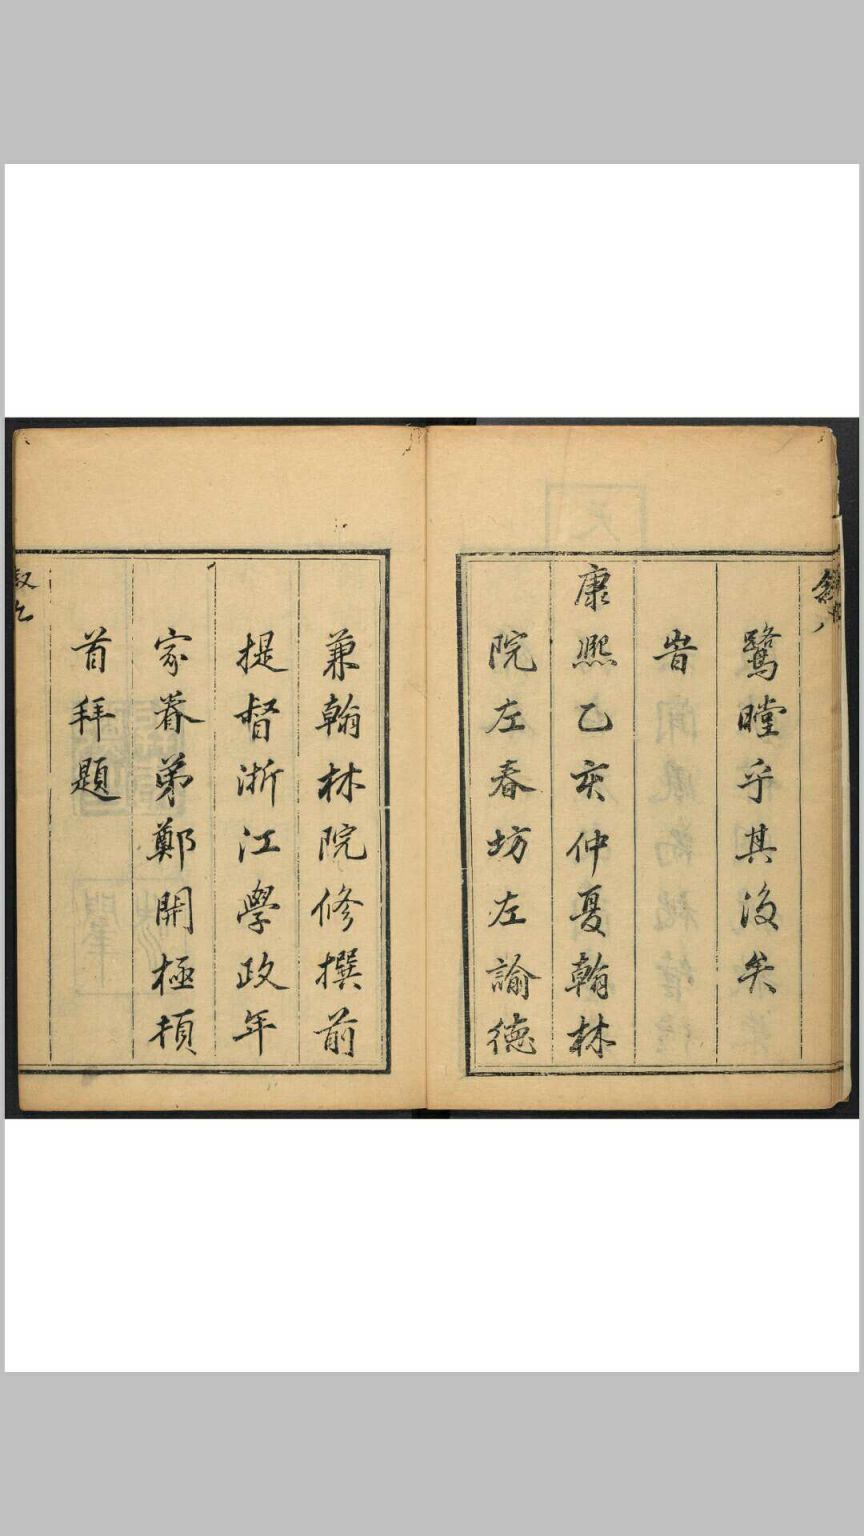 鷺瞠乎其後矣
旹
康熙乙亥仲夏翰林
院左春坊左諭德
兼翰林院修撰前
提督浙江學政年
家眷弟鄭開極頓
首拜題